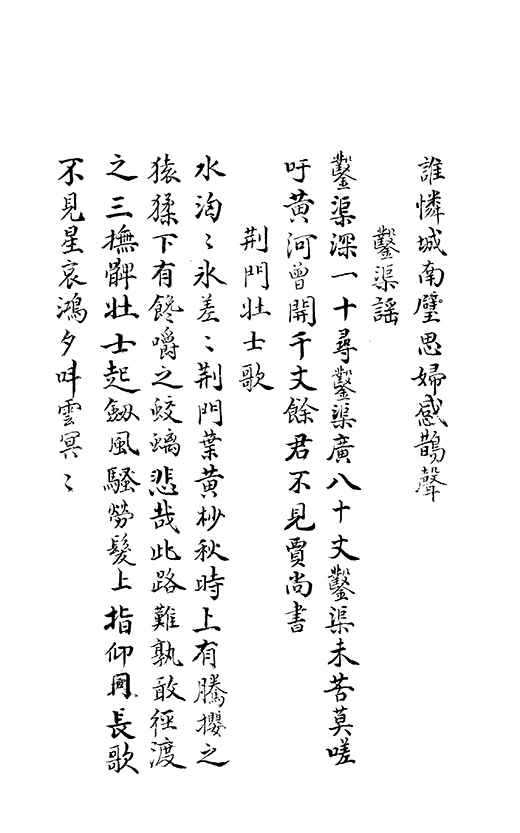 誰憐城南壁思婦感鵲聲
鑿渠謡
鑿渠深一十尋鑿渠廣八十丈鑿渠未苦莫嗟
吁黄河曾開千丈餘君不見賈尚書
荆門壮士歌
水洶〻氷差〻荆門葉黄杪秋時上有騰攖之
猿猱下有饞嚼之蛟螭悲哉此路難孰敢徑渡
之三撫髀壮士起劔風騷勞髮上指仰圖長歌
不見星哀鴻夕呌雲冥〻